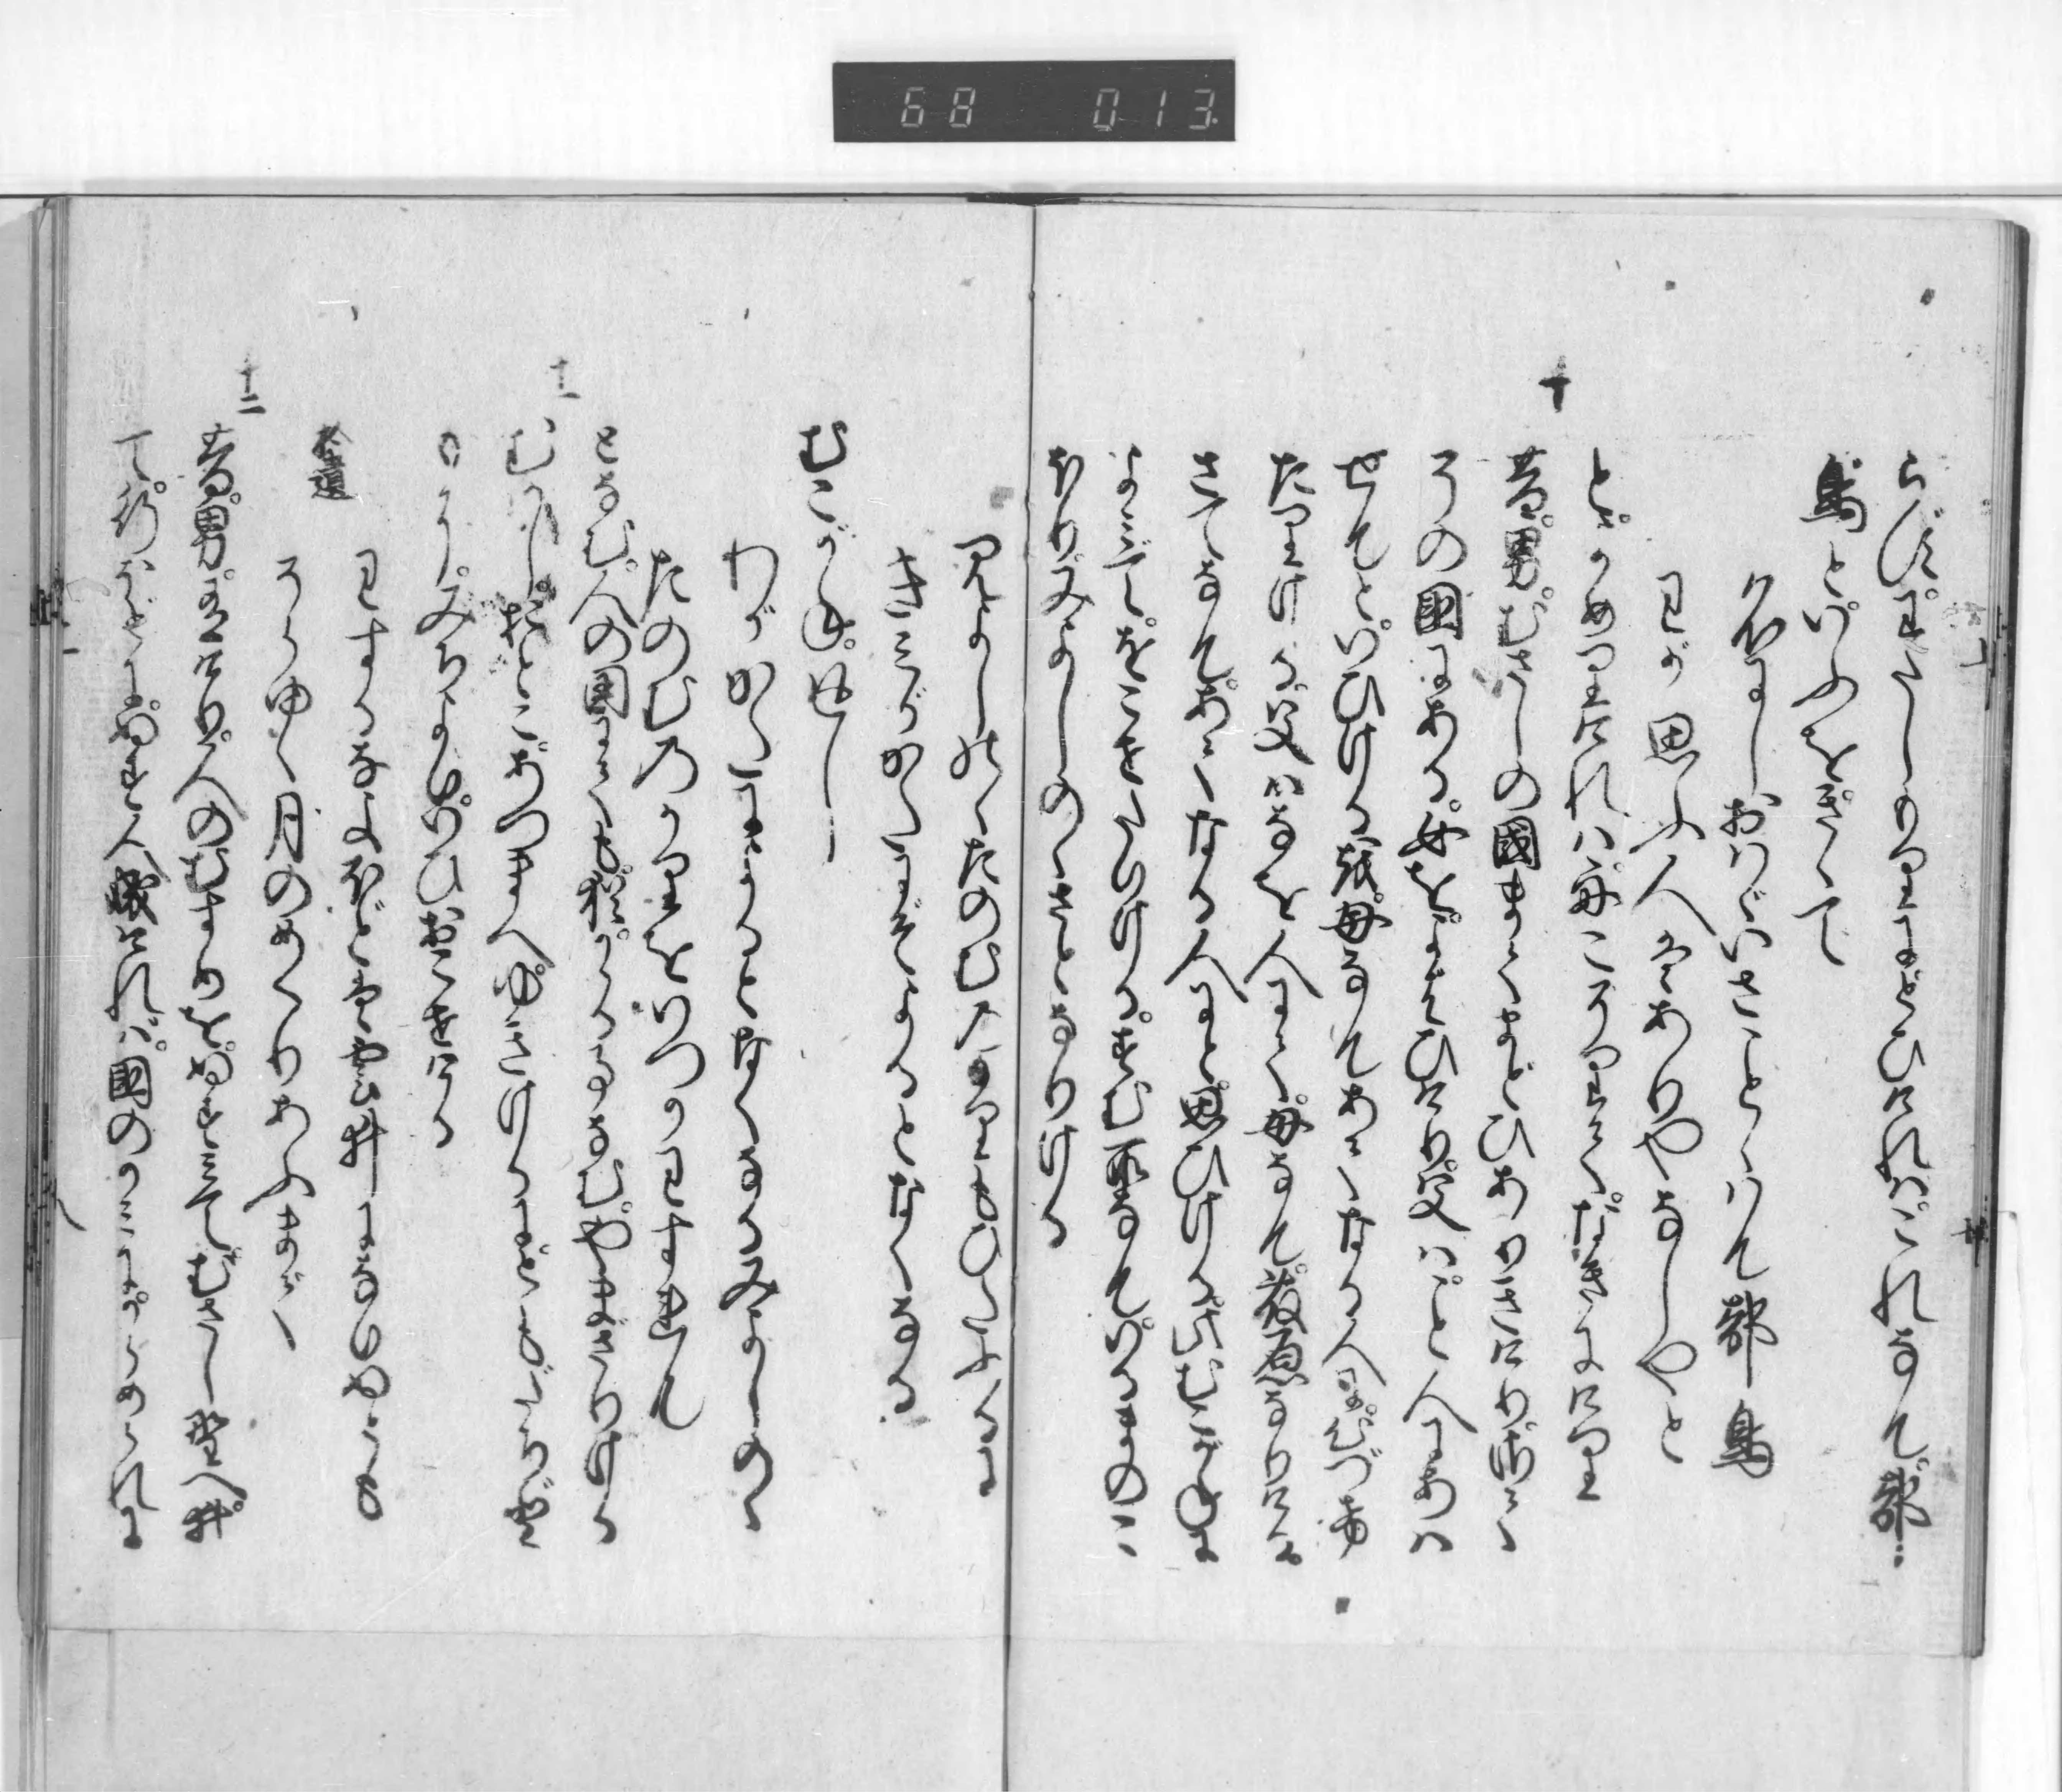 68 013
らず。わたしもりにとひければ。これなん。都
鳥といふをきゝて
名にしおはゞいざことゝはん都鳥
わが思ふ人はありやなしやと
とよめりければ舟こぞりてなきにけり
十
昔。男。むさしの國までまどひありきけり。さて
その國にある。女を。よばひけり。父は。こと人にあは
せんと。いひけるを。母なんあてなる人に心づけ
たりける。父はなを人にて。母なん。藤原なりける
さてなん。あてなる人にと。思ひける。此むこがねに
よみて。をこせたりける。すむ所なん。いるまのこ
ほりみよしのゝさとなりける
みよしのゝたのむのかりもひたふるに
きみがかたにぞよるとなくなる
むこがね。返し
わがかたによるとなくなるみよしのゝ
たのむのかりをいつかわすれん
となむ。人の國にても。猶。かゝることなむ。やまざりける
十一
むかし。おとこ。あづまへ。ゆきけるに。ともだちども
に。みちより。いひおこせける
拾遺
わするなよほどは雲井になりぬとも
そらゆく月のめぐりあふまで
十二
昔。男。ありけり。人のむすめを。ぬすみて。むさし野へ。井
て。行ほどに。ぬす人成ければ。國のかみに。からめられに